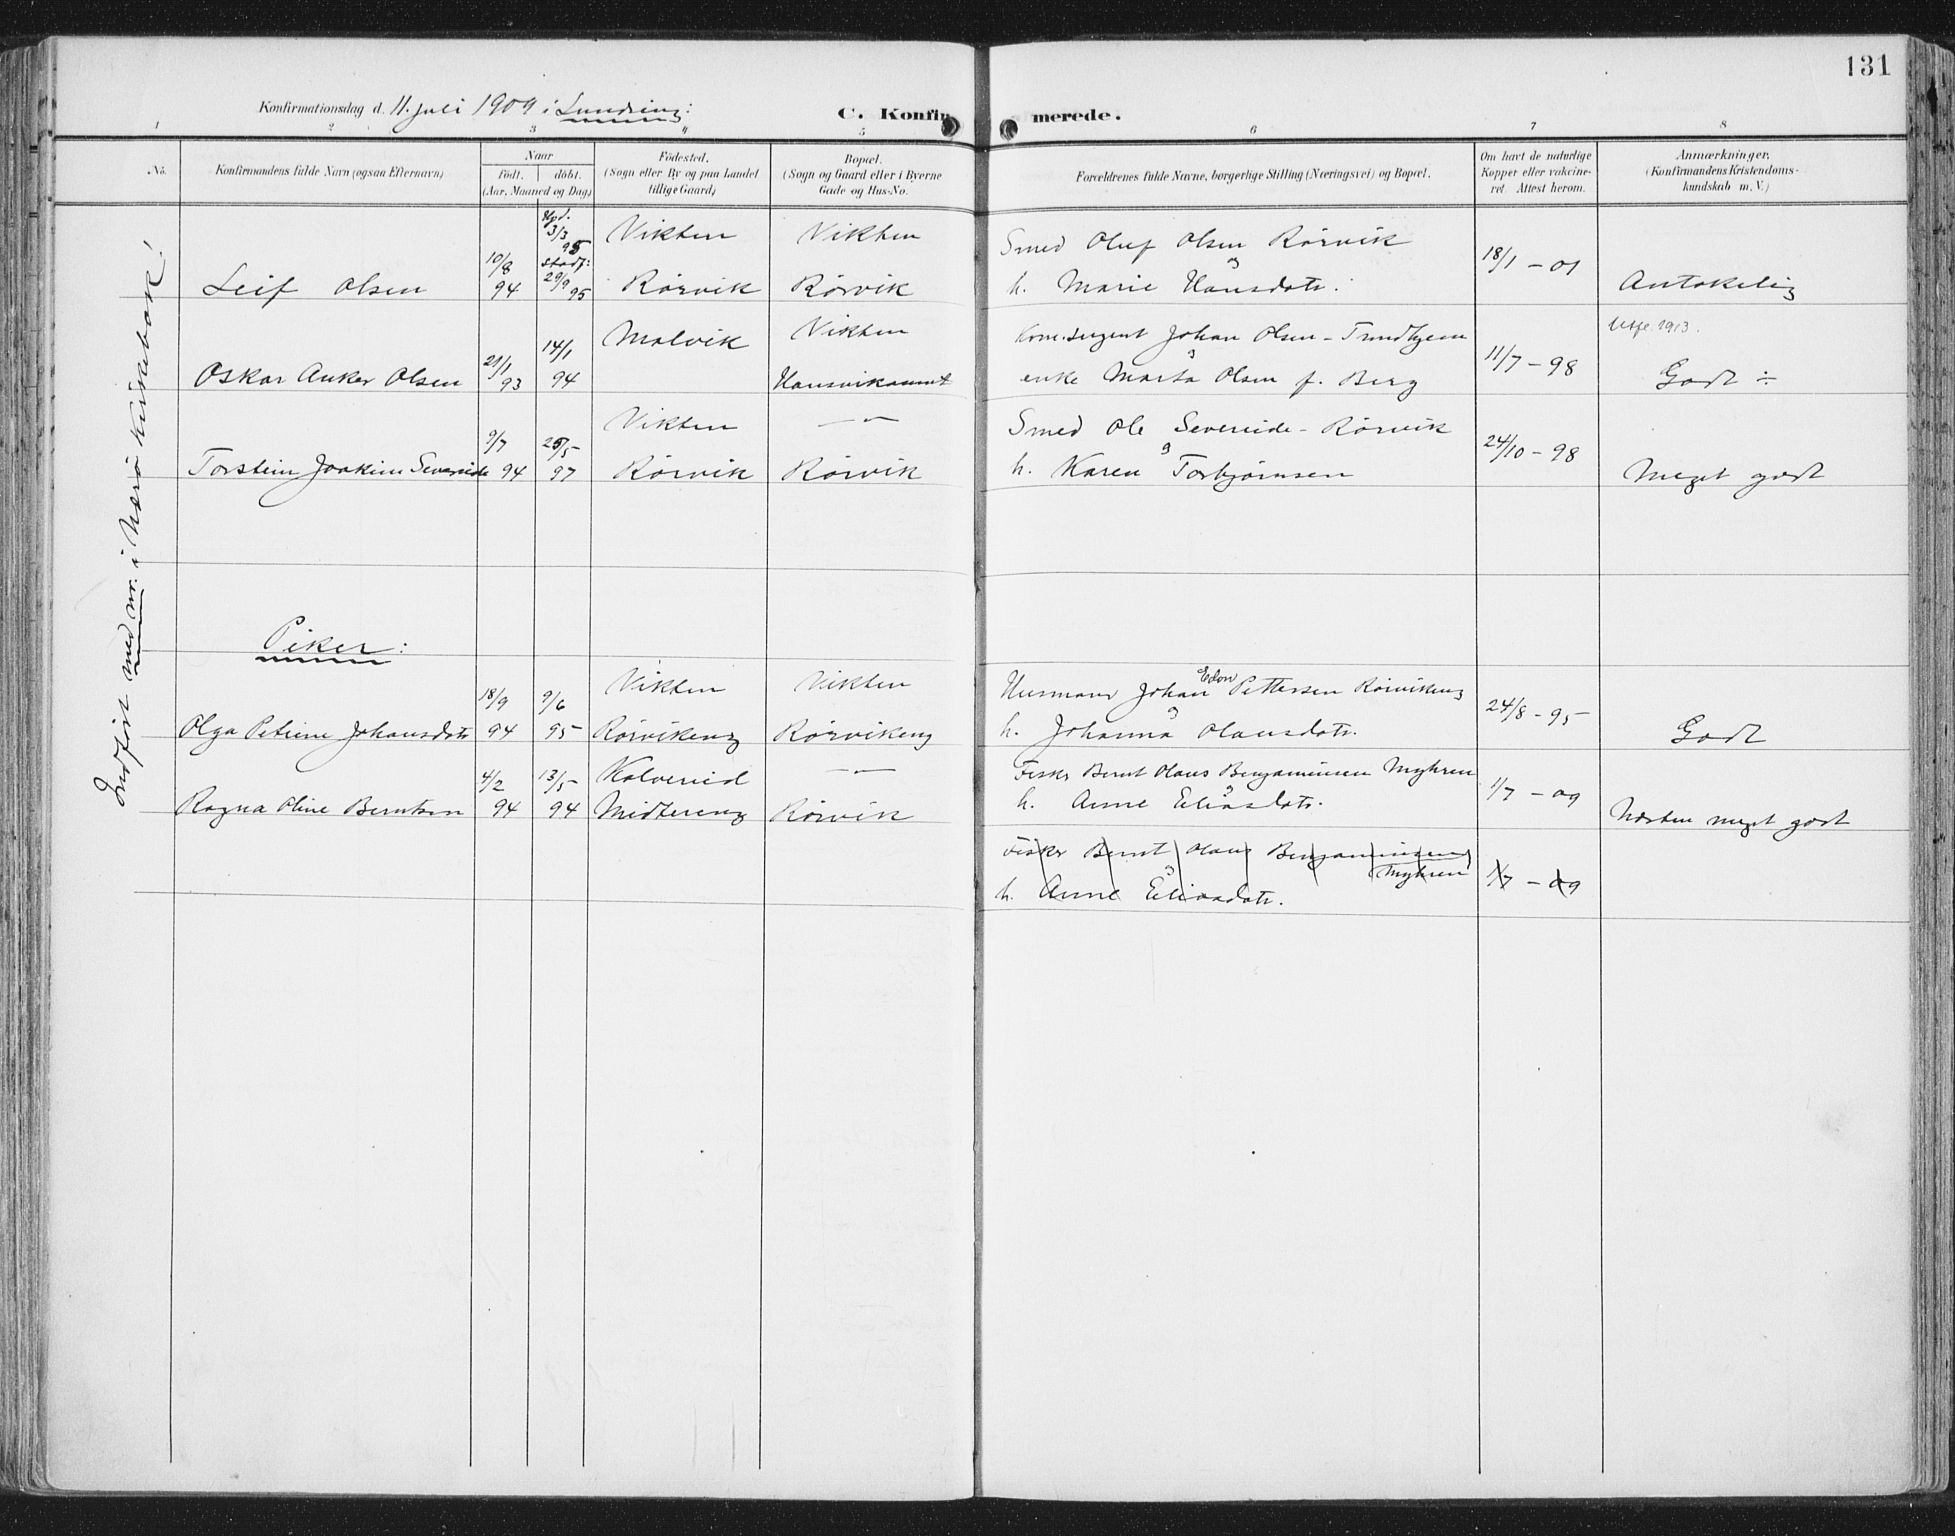 131
Konfirmationsdag d. 11. juli 1909 i Lundring:
C. Konfirmerede.
1 2 3 4 5 6 7 8
No.
Konfirmandens fulde Navn (ogsaa Efternavn)
Naar
födt. döbt.
(Aar, Maaned og Dag)
Födested.
(Sogn eller By og paa Landet
tillige Gaard)
Bopæl.
(Sogn og Gaard eller i Byerne
Gade og Hus-No.
Forældrenes fulde Navne, borgerlige Stilling (Næringsvei) og Bopæl.
Om havt de naturlige
Kopper eller vakcine-
ret. Attest herom.
Anmærkninger.
(Konfirmandens Kristendoms-
kundskab m. V.)
Indført med nr. i Nærö kirkebok!
Hjd. 3/3 95 Vikten Vikten Smed Oluf Olsen Rörvik
Leif Olsen 10/8 94 stadf: 29/9 95 Rörvik Rörvik og h. Marie Hansdatr. 18/1 - 01 Antakelig
Malvik Vikten Kom.sergent Johan Olsen - Trondhjem Utfl. 1913.
Oskar Anker Olsen 21/1 93 14/1 94 og enke Marta Olsen f. Berg 11/7 - 98 Godt ÷
Vikten — " — Smed Ole Severeide - Rörvik
Torstein Joakim Severeide 9/7 94 25/5 97 Rörvik Rörvik og h. Karen Torbjörnsen 24/10 - 98 Meget godt
Piker:
Vikten Vikten Husmand Johan Edon Pettersen Rörvikeng
Olga Petrine Johansdatr 18/9 94 9/6 95 Rörvikeng Rörvikeng og h. Johanna Olausdatr. 24/8 - 95 Godt
Kolvereid — " — Fisker Bernt Olaus Benjaminsen Myhren
Ragna Oline Berntsen 4/2 94 13/5 94 Midtereng Rörvik og h. Anne Eliasdatr. 1/7 - 09 Næsten meget godt
Fisker Bernt Olaus Benjaminsen Myhren
og h. Anne Eliasdatr. 1/7 - 09